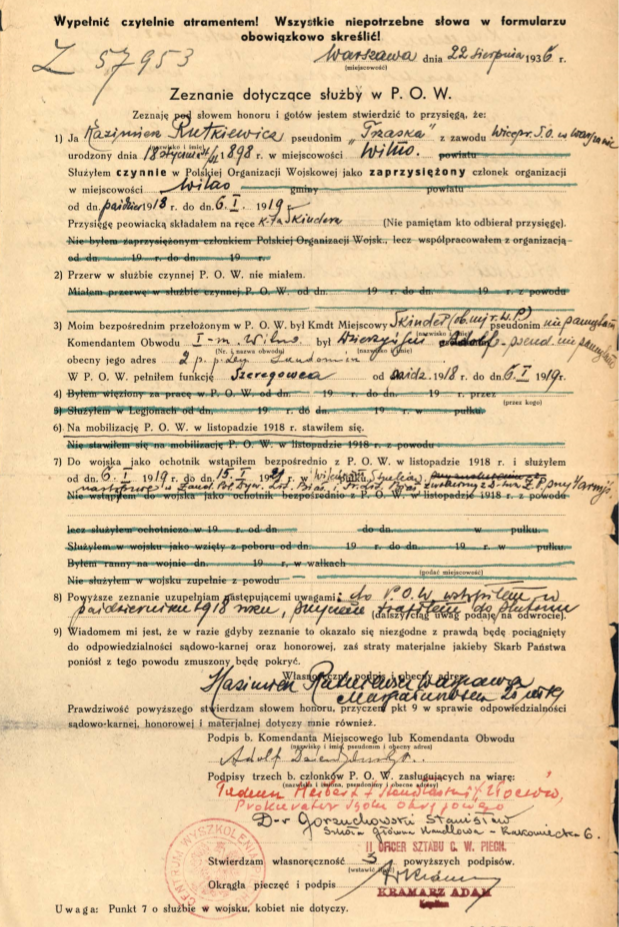 Wypełnić czytelnie atramentem! Wszystkie niepotrzebne słowa w formularzu
obowiązkowo skreślić!
Z 57953
Warszawa dnia 22 sierpnia 1936 r.
(miejscowość)
Zeznanie dotyczące służby w P. O. W.
Zeznaję pod słowem honoru i gotów jestem stwierdzić to przysięgą, że:
1) Ja Kazimierz Rutkiewicz pseudonim „Trzaska" z zawodu
(nazwisko i imię)
urodzony dnia 18 stycznia 1898 r. w miejscowości Wilno. powiatu
Służyłem czynnie w Polskiej Organizacji Wojskowej jako zaprzysiężony członek organizacji
w miejscowości Wilno gminy powiatu
od dn. paździer 1918 r. do dn. 6. I. 1919 r.
Przysięgę peowiacką składałem na ręce Skindera (Nie pamiętam kto odbierał przysięgę).
Nie byłem zaprzysiężonym członkiem Polskiej Organizacji Wojsk., lecz współpracowałem z organizacją
od dn. 19 r. do dn. 19 r.
2) Przerw w służbie czynnej P. O. W. nie miałem.
Miałem przerwę w służbie czynnej P. O. W. od dn. 19 r. do dn. 19 r. z powodu
3) Moim bezpośrednim przełożonym w P. O. W. był Kmdt Miejscowy Skinder (ob. mjr. W.P) pseudonim nie pamiętam
(nazwisko i imię)
Komendantem Obwodu I-m. Wilno był Adolf - pseud. nie pamiętam
(Nr. i nazwa obwodu) (nazwisko i imię)
obecny jego adres 2 p. p. Leg. Sandomierz
W P. O. W. pełniłem funkcję Szeregowca od paźdz. 1918 r. do dn. 6 I 1919 r.
4) Byłem więziony za pracę w P. O. W. od dn. 19 r. do dn. 19 r. przez
(przez kogo)
5) Służyłem w Legionach od dn. 19 r. do dn. 19 r. w pułku.
6) Na mobilizację P. O. W. w listopadzie 1918 r. stawiłem się.
Nie stawiłem się na mobilizację P. O. W. w listopadzie 1918 r. z powodu
7) Do wojska jako ochotnik wstąpiłem bezpośrednio z P. O. W. w listopadzie 1918 r. i służyłem
od dn. 6. I 1919 r. do dn. 15. I 19 r. w Strzelców,
Nie wstąpiłem do wojska jako ochotnik bezpośrednio z P. O. W. w listopadzie 1918 r. z powodu
lecz służyłem ochotniczo w 19 r. od dn. do dn. w pułku.
Służyłem w wojsku jako wzięty z poboru od dn. 19 r. do dn. 19 r. w pułku.
Byłem ranny na wojnie dn. 19 r. w walkach
(podać miejscowość)
Nie służyłem w wojsku zupełnie z powodu
8) Powyższe zeznanie uzupełniam następującemi uwagami: do P.O.W. wstąpiłem w
październiku 1918 roku, przyczem trafiłem do plutonu
(dalszy ciąg uwag podaję na odwrocie).
9) Wiadomem mi jest, że w razie gdyby zeznanie to okazało się niezgodne z prawdą będę pociągnięty
do odpowiedzialności sądowo-karnej oraz honorowej, zaś straty materjalne jakieby Skarb Państwa
poniósł z tego powodu zmuszony będę pokryć.
Własnoręczny podpis i obecny adres
Kazimierz Rutkiewicz Warszawa
Prawdziwość powyższego stwierdzam słowem honoru, przyczem pkt 9 w sprawie odpowiedzialności
sądowo-karnej, honorowej i materjalnej dotyczy mnie również.
Podpis b. Komendanta Miejscowego lub Komendanta Obwodu
(nazwisko i imię, pseudonim i obecny adres)
Adolf
Podpisy trzech b. członków P. O. W. zasługujących na wiarę:
(nazwiska i imiona, pseudonimy i obecne adresy)
Tadeusz Herbert Złoczów,
Prokurator Sądu Okręgowego
D-r Gorzuchowski Stanisław
Szkoła Główna Handlowa - Rakowiecka 6.
II OFICER SZTABU C. W. PIECH.
Stwierdzam własnoręczność 5 powyższych podpisów.
(wstawić ilość)
Okrągła pieczęć i podpis
KRAMARZ ADAM
Kapitan
CENTRUM WYSZKOLENIA
Uwaga: Punkt 7 o służbie w wojsku, kobiet nie dotyczy.